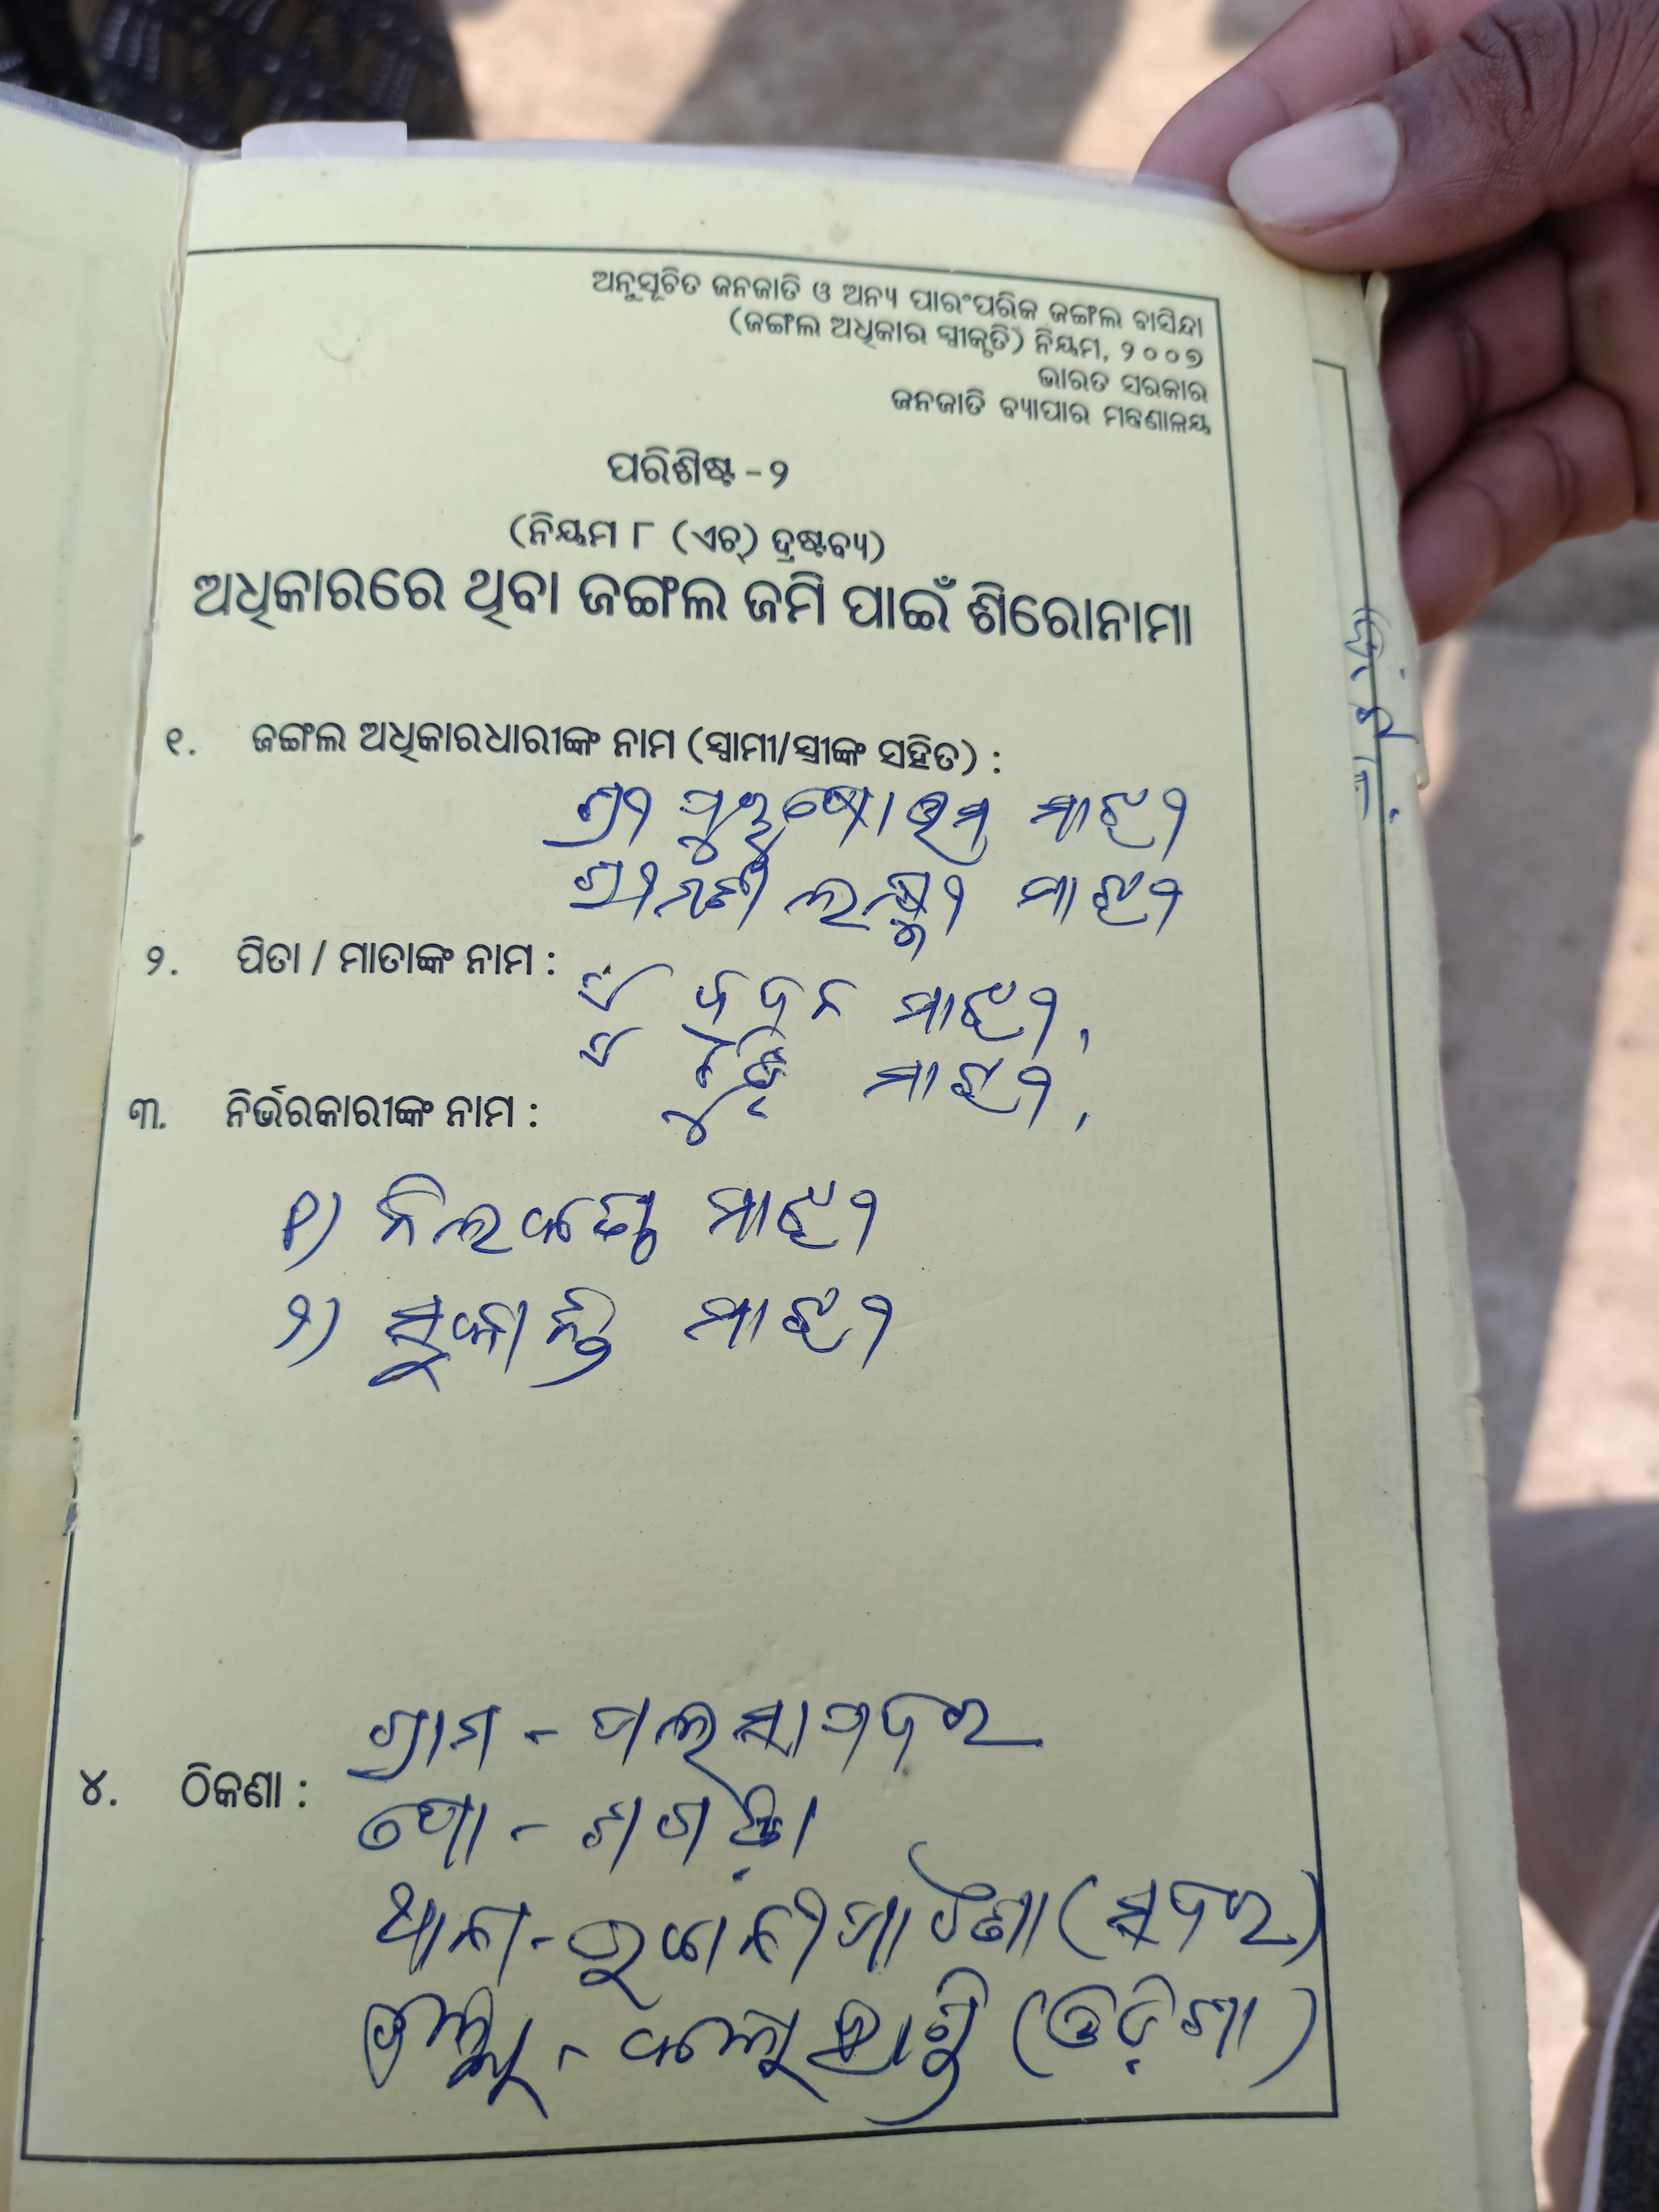 ଅନୁସୂଚିତ ଜନଜାତି ଓ ଅନ୍ୟ ପାରଂପରିକ ଜଙ୍ଗଲ ବାସିନ୍ଦା
(ଜଙ୍ଗଲ ଅଧିକାର ସ୍ୱୀକୃତି) ନିୟମ, ୨୦୦୭
ଭାରତ ସରକାର
ଜନଜାତି ବ୍ୟାପାର ମନ୍ତ୍ରଣାଳୟ
ପରିଶିଷ୍ଟ - ୨
(ନିୟମ ୮ (ଏଚ୍) ଦ୍ରଷ୍ଟବ୍ୟ)
ଅଧିକାରରେ ଥିବା ଜଙ୍ଗଲ ଜମି ପାଇଁ ଶିରୋନାମା
୧. ଜଙ୍ଗଲ ଅଧିକାରଧାରୀଙ୍କ ନାମ (ସ୍ୱାମୀ/ସ୍ତ୍ରୀଙ୍କ ସହିତ) :
ଶ୍ରୀ ପୁରୁଷୋତ୍ତମ ମାଝୀ
ଶ୍ରୀମତୀ ଲକ୍ଷ୍ମୀ ମାଝୀ
୨. ପିତା / ମାତାଙ୍କ ନାମ :
ମାଝୀ,
ମାଝୀ,
୩. ନିର୍ଭରକାରୀଙ୍କ ନାମ :
୧) ନିଲକଣ୍ଠ ମାଝୀ
୨) ସୁକାନ୍ତି ମାଝୀ
ଗ୍ରାମ -
୪. ଠିକଣା :
ପୋ -
ଥାନା - ଭବାନୀପାଟଣା (ସଦର)
ଜିଲ୍ଲା - କଳାହାଣ୍ଡି (ଓଡ଼ିଶା)